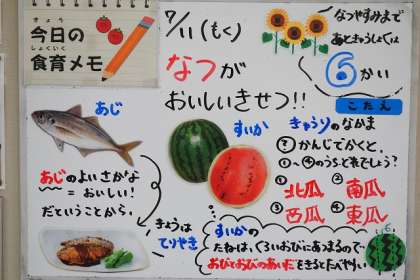 きょう
今日の
しょくいく
食育メモ
7/11(もく)
なつが
おいしいきせつ!!
なつやすみまで
あときゅうしょくは
6かい
こたえ
あじ
あじのよいさかな
=おいしい!
だということから。
きょうは
てりやき
すいか
きゅうりのなかま
?かんじでかくと、
①~④のうちどれでしょう?
①北瓜 ②南瓜
③西瓜 ④東瓜
すいかの
たねは、くろいおびにあつまるので
おびとおびのあいだをきるとたべやすい